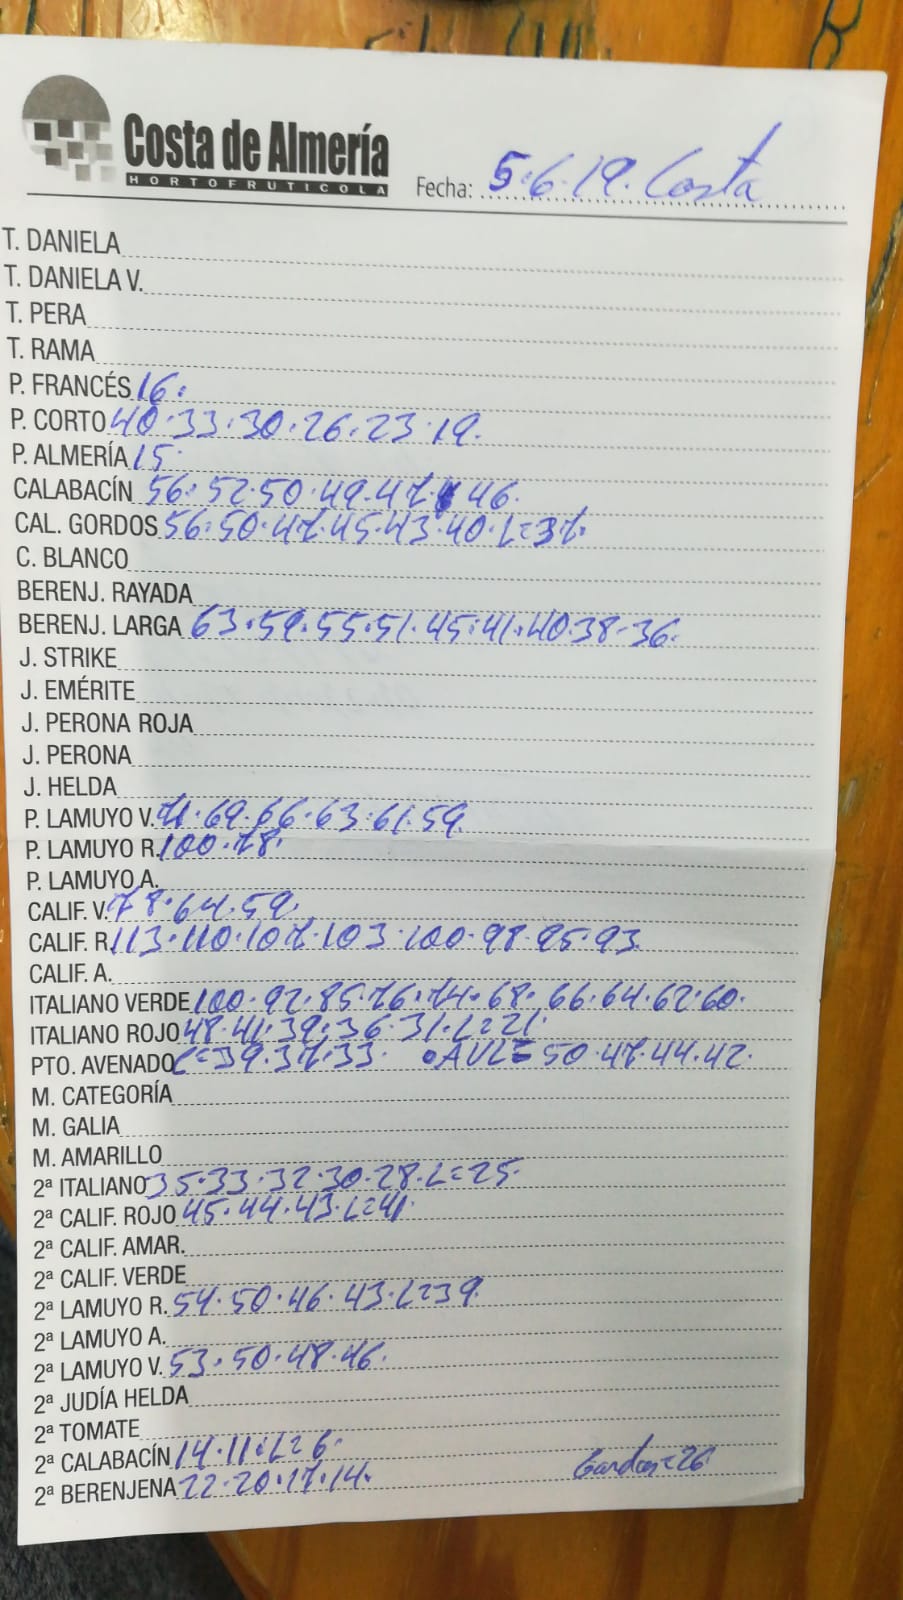 Costa de Almería
HORTOFRUTICOLA
Fecha: 5.6.19. Costa
T. DANIELA
T. DANIELA V.
T. PERA
T. RAMA
P. FRANCÉS 16.
P. CORTO 40.33.30.26.23.19.
P. ALMERÍA 15.
CALABACÍN 56.52.50.49.47.46.
CAL. GORDOS 56.50.47.45.43.40.L=37.
C. BLANCO
BERENJ. RAYADA
BERENJ. LARGA 63.59.55.51.45.41.40.38.36.
J. STRIKE
J. EMÉRITE
J. PERONA ROJA
J. PERONA
J. HELDA
P. LAMUYO V. 71.69.66.63.61.59.
P. LAMUYO R. 100.78.
P. LAMUYO A.
CALIF. V. 78.64.59.
CALIF. R. 113.110.107.103.100.98.95.93
CALIF. A.
ITALIANO VERDE 100.92.85.76.74.68.66.64.62.60.
ITALIANO ROJO 48.41.39.36.31.L=21.
PTO. AVENADO C=39.37.33. •AVL=50.47.44.42.
M. CATEGORÍA
M. GALIA
M. AMARILLO
2ª ITALIANO 35.33.32.30.28.L=25.
2ª CALIF. ROJO 45.44.43.L=41.
2ª CALIF. AMAR.
2ª CALIF. VERDE
2ª LAMUYO R. 54.50.46.43.L=39.
2ª LAMUYO A.
2ª LAMUYO V. 53.50.48.46.
2ª JUDÍA HELDA
2ª TOMATE
2ª CALABACÍN 14.11.L=6.
2ª BERENJENA 22.20.17.14. Gordos=26